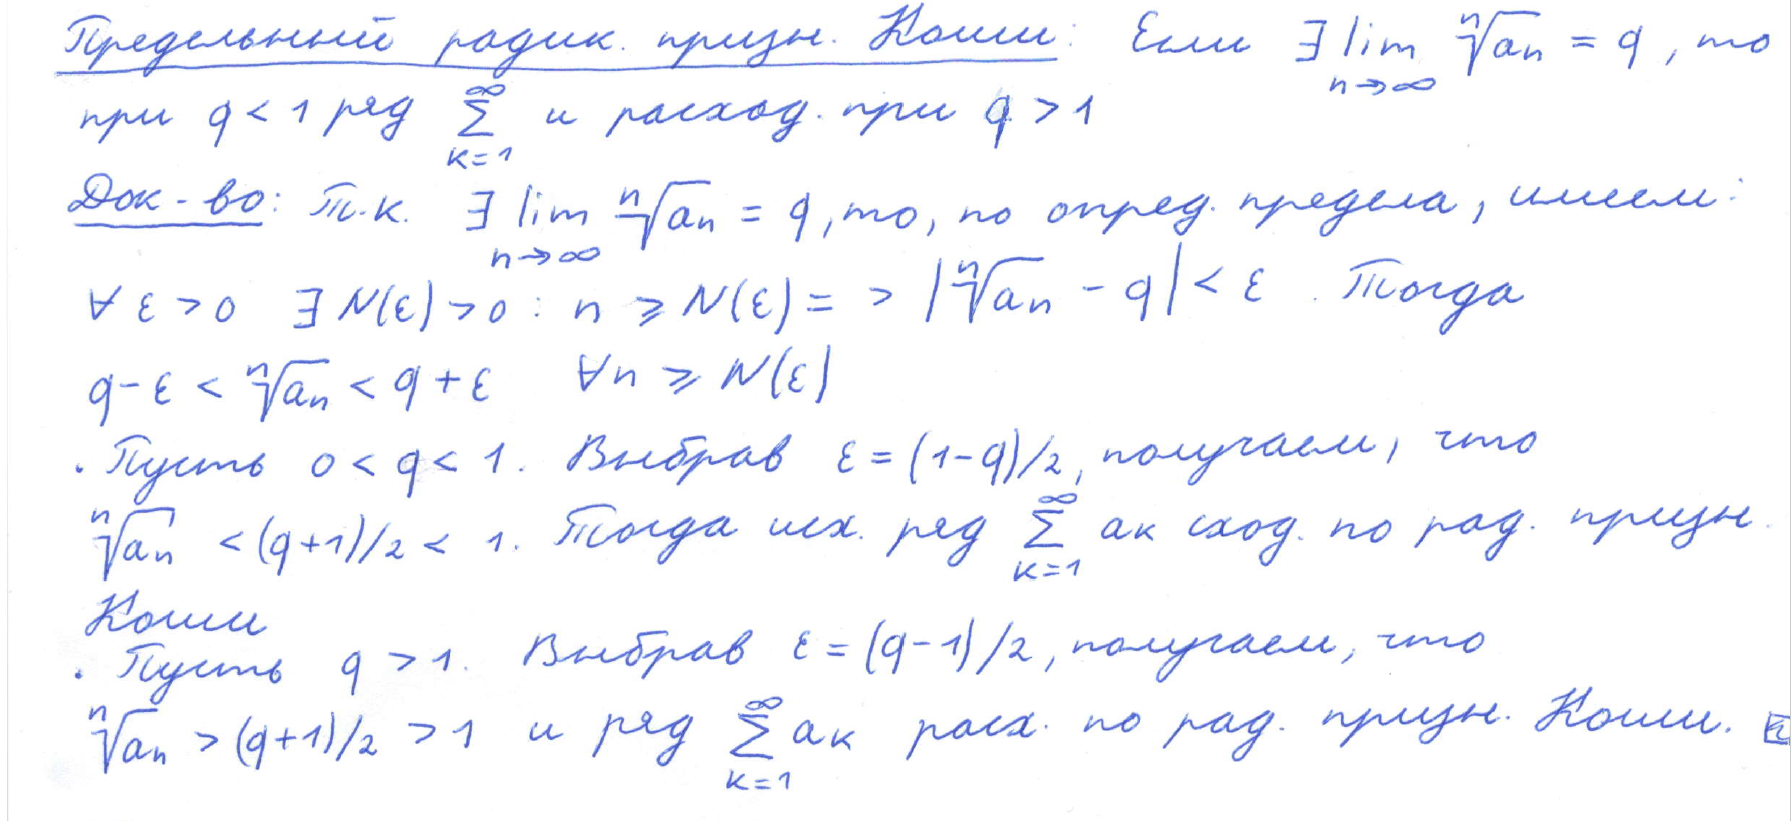 Предельный радик. призн. Коши: Если ∃ lim n→∞ ⁿ√aₙ = q, то
при q < 1 ряд ∑ k=1 ∞ и расход. при q > 1
Док-во: Т.к. ∃ lim n→∞ ⁿ√aₙ = q, то, по опред. предела, имеем:
∀ ε > 0 ∃ N(ε) > 0 : n ⩾ N(ε) => |ⁿ√aₙ - q| < ε. Тогда
q - ε < ⁿ√aₙ < q + ε ∀n ⩾ N(ε)
. Пусть 0 < q < 1. Выбрав ε = (1-q)/2, получаем, что
ⁿ√aₙ < (q+1)/2 < 1. Тогда исх. ряд ∑ k=1 ∞ aк сход. по рад. призн.
Коши
. Пусть q > 1. Выбрав ε = (q-1)/2, получаем, что
ⁿ√aₙ > (q+1)/2 > 1 и ряд ∑ k=1 ∞ aₖ расх. по рад. призн. Коши.